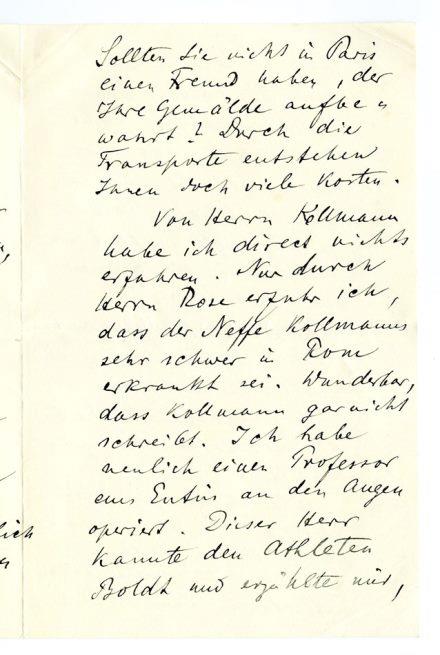 Sollten Sie nicht in Paris
einen Freund haben, der
Ihre Gemälde aufbe„
wahrt? Durch die
Transporte entstehen
Ihnen doch viele Kosten.
Von Herrn Kollmann
habe ich direct nichts
erfahren. Nur durch
Herrn Rose erfuhr ich,
dass der Neffe Kollmanns
sehr schwer in Rom
erkrankt sei. Wunderbar,
dass Kollmann garnicht
schreibt. Ich habe
neulich einen Professor
aus Eutin an den Augen
operiert. Dieser Herr
kannte den Athleten
Boldt und erzählte mir,
lich